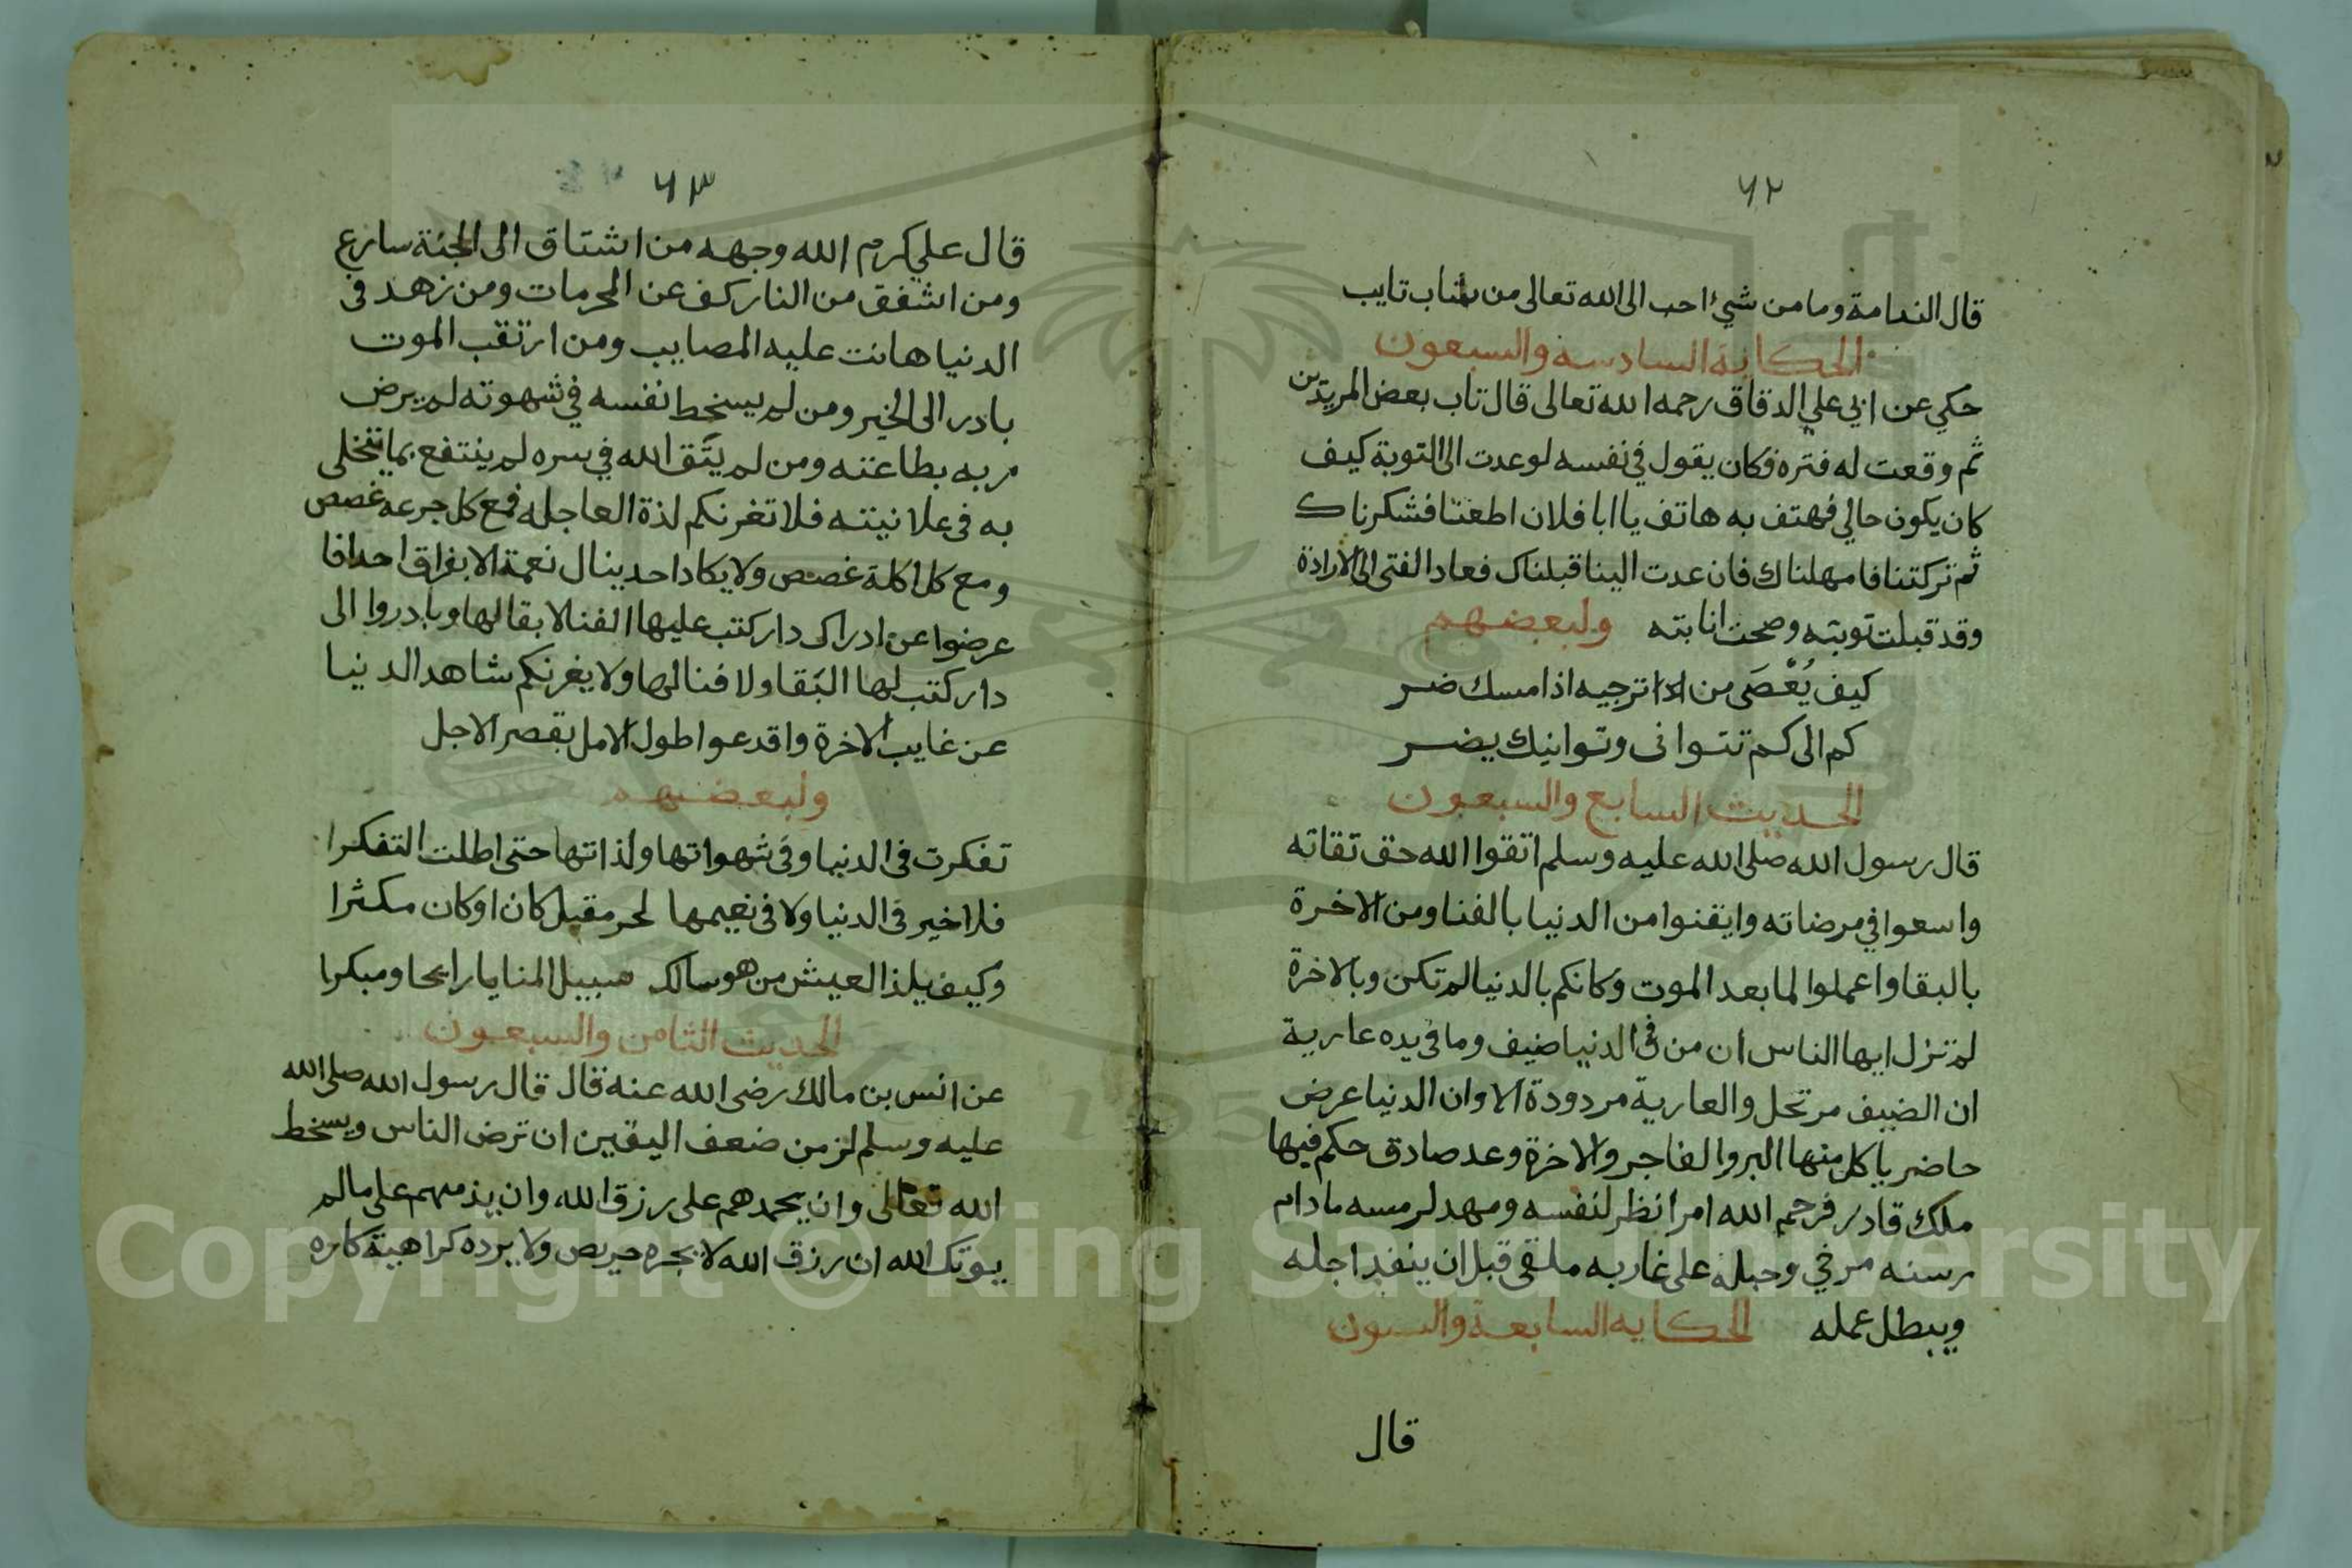 ٦٢
قال الندامة وما من شيء احب الى الله تعالى من شاب تايب
الحكاية السادسه والسبعون
حكي عن ابي علي الدقاق رحمه الله تعالى قال تاب بعض المريدين
ثم وقعت له فتره فكان يقول في نفسه لو عدت الى التوبة كيف
كان يكون حالي فهتف به هاتف يا ابا فلان اطعتنا فشكرناك
ثم تركتنا فامهلناك فان عدت الينا قبلناك فعاد الفتى الى الارادة
وقد قبلت توبته وصحت انابته ولبعضهم
كيف يُعْصَى من اذا ترجيه اذا مسك ضر
كم الى كم تتوانى وتوانيك يضر
الحديث السابع والسبعون
قال رسول الله صلى الله عليه وسلم اتقوا الله حق تقاته
واسعوا في مرضاته وايقنوا من الدنيا بالفنا ومن الاخرة
بالبقا واعملوا لما بعد الموت وكانكم بالدنيا لم تكن وبالاخرة
لم تزل ايها الناس ان من في الدنيا ضيف وما في يده عارية
ان الضيف مرتحل والعارية مردودة الا وان الدنيا عرض
حاضر ياكل منها البر والفاجر والاخرة وعد صادق حكم فيها
ملك قادر فرحم الله امرا نظر لنفسه ومهد لرمسه ما دام
رسنه مرخي وحبله على غاربه ملقى قبل ان ينفد اجله
ويبطل عمله الحكايه السابعة والسبعون
قال
٦٣
قال علي كرم الله وجهه من اشتاق الى الجنة سارع
ومن اشفق من النار كف عن المحرمات ومن زهد في
الدنيا هانت عليه المصايب ومن ارتقب الموت
بادر الى الخير ومن لم يسخط نفسه في شهوته لم يرض
ربه بطاعته ومن لم يتَّق الله في سره لم ينتفع بما يتخلى
به في علانيته فلا تغرنكم لذة العاجله فمع كل جرعه غصص
ومع كل اكلة غصص ولا يكاد احد ينال نعمة الا بفراق احدا فا
عرضوا عن ادراك دار كتب عليها الفنا لا بقا لها وبادروا الى
دار كتب لها البقا ولا فنا لها ولا يغرنكم شاهد الدنيا
عن غايب الاخرة واقدعوا طول الامل بقصر الاجل
ولبعضهم
تفكرت في الدنيا وفي شهواتها ولذاتها حتى اطلت التفكرا
فلا خير في الدنيا ولا في نعيمها لحر مقبل كان او كان مكثرا
وكيف يلذ العيش من هو سالك سبيل المنايا رايحا ومبكرا
الحديث الثامن والسبعون
عن انس بن مالك رضى الله عنه قال قال رسول الله صلى الله
عليه وسلم لز من ضعف اليقين ان ترض الناس وبسخط
الله تعالى وان يحمدهم على رزق الله وان يذمهم على مالم
يوتك الله ان رزق الله لا يجره حريص ولا يرده كراهية كاره
Copyright © King Saud University